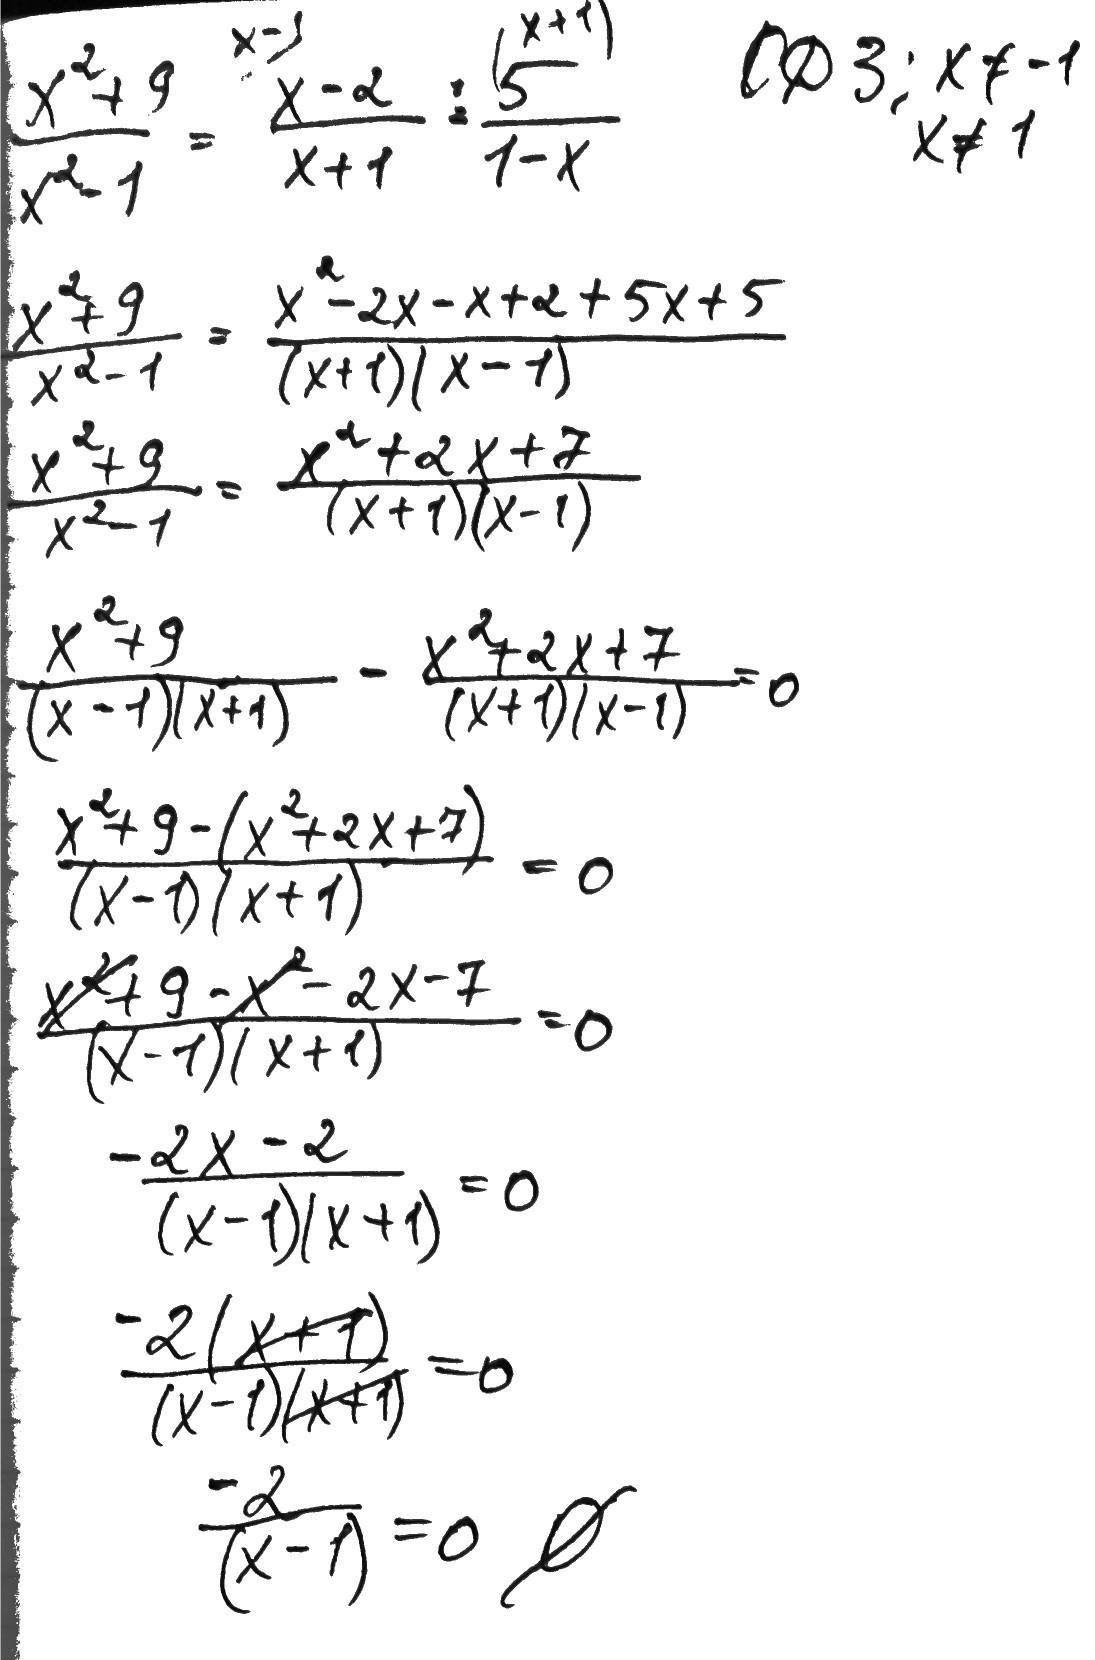 x²+9/x²-1 = x-1) x-2/x+1 : (x+1) 5/1-x ОДЗ: x≠-1
x≠1
x²+9/x²-1 = x²-2x-x+2+5x+5/(x+1)(x-1)
x²+9/x²-1 = x²+2x+7/(x+1)(x-1)
x²+9/(x-1)(x+1) - x²+2x+7/(x+1)(x-1) = 0
x²+9-(x²+2x+7)/(x-1)(x+1) = 0
x²+9-x²-2x-7/(x-1)(x+1) = 0
-2x-2/(x-1)(x+1) = 0
-2(x+1)/(x-1)(x+1) = 0
-2/(x-1) = 0 ∅